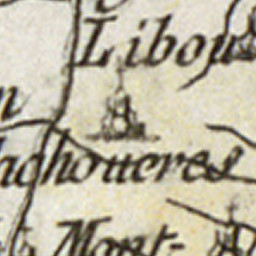 Libou
n
achoueres
Mont-